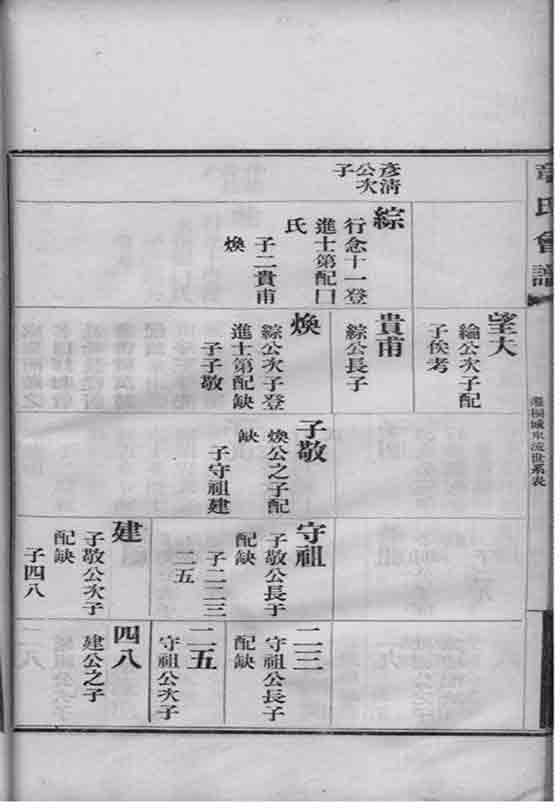 章氏會譜
遷桐城東流世系表
彥清
公次
子
綜
行念十一登
進士第配囗
氏
子二貴甫
煥
望大
綸公次子配
子俟考
貴甫
綜公長子
煥
綜公次子登
進士第配缺
子子敬
子敬
煥公之子配
缺
子守祖建
守祖
子敬公長子
配缺
子二二三
二五
建
子敬公次子
配缺
子四八
二三
守祖公長子
配缺
二五
守祖公次子
四八
建公之子